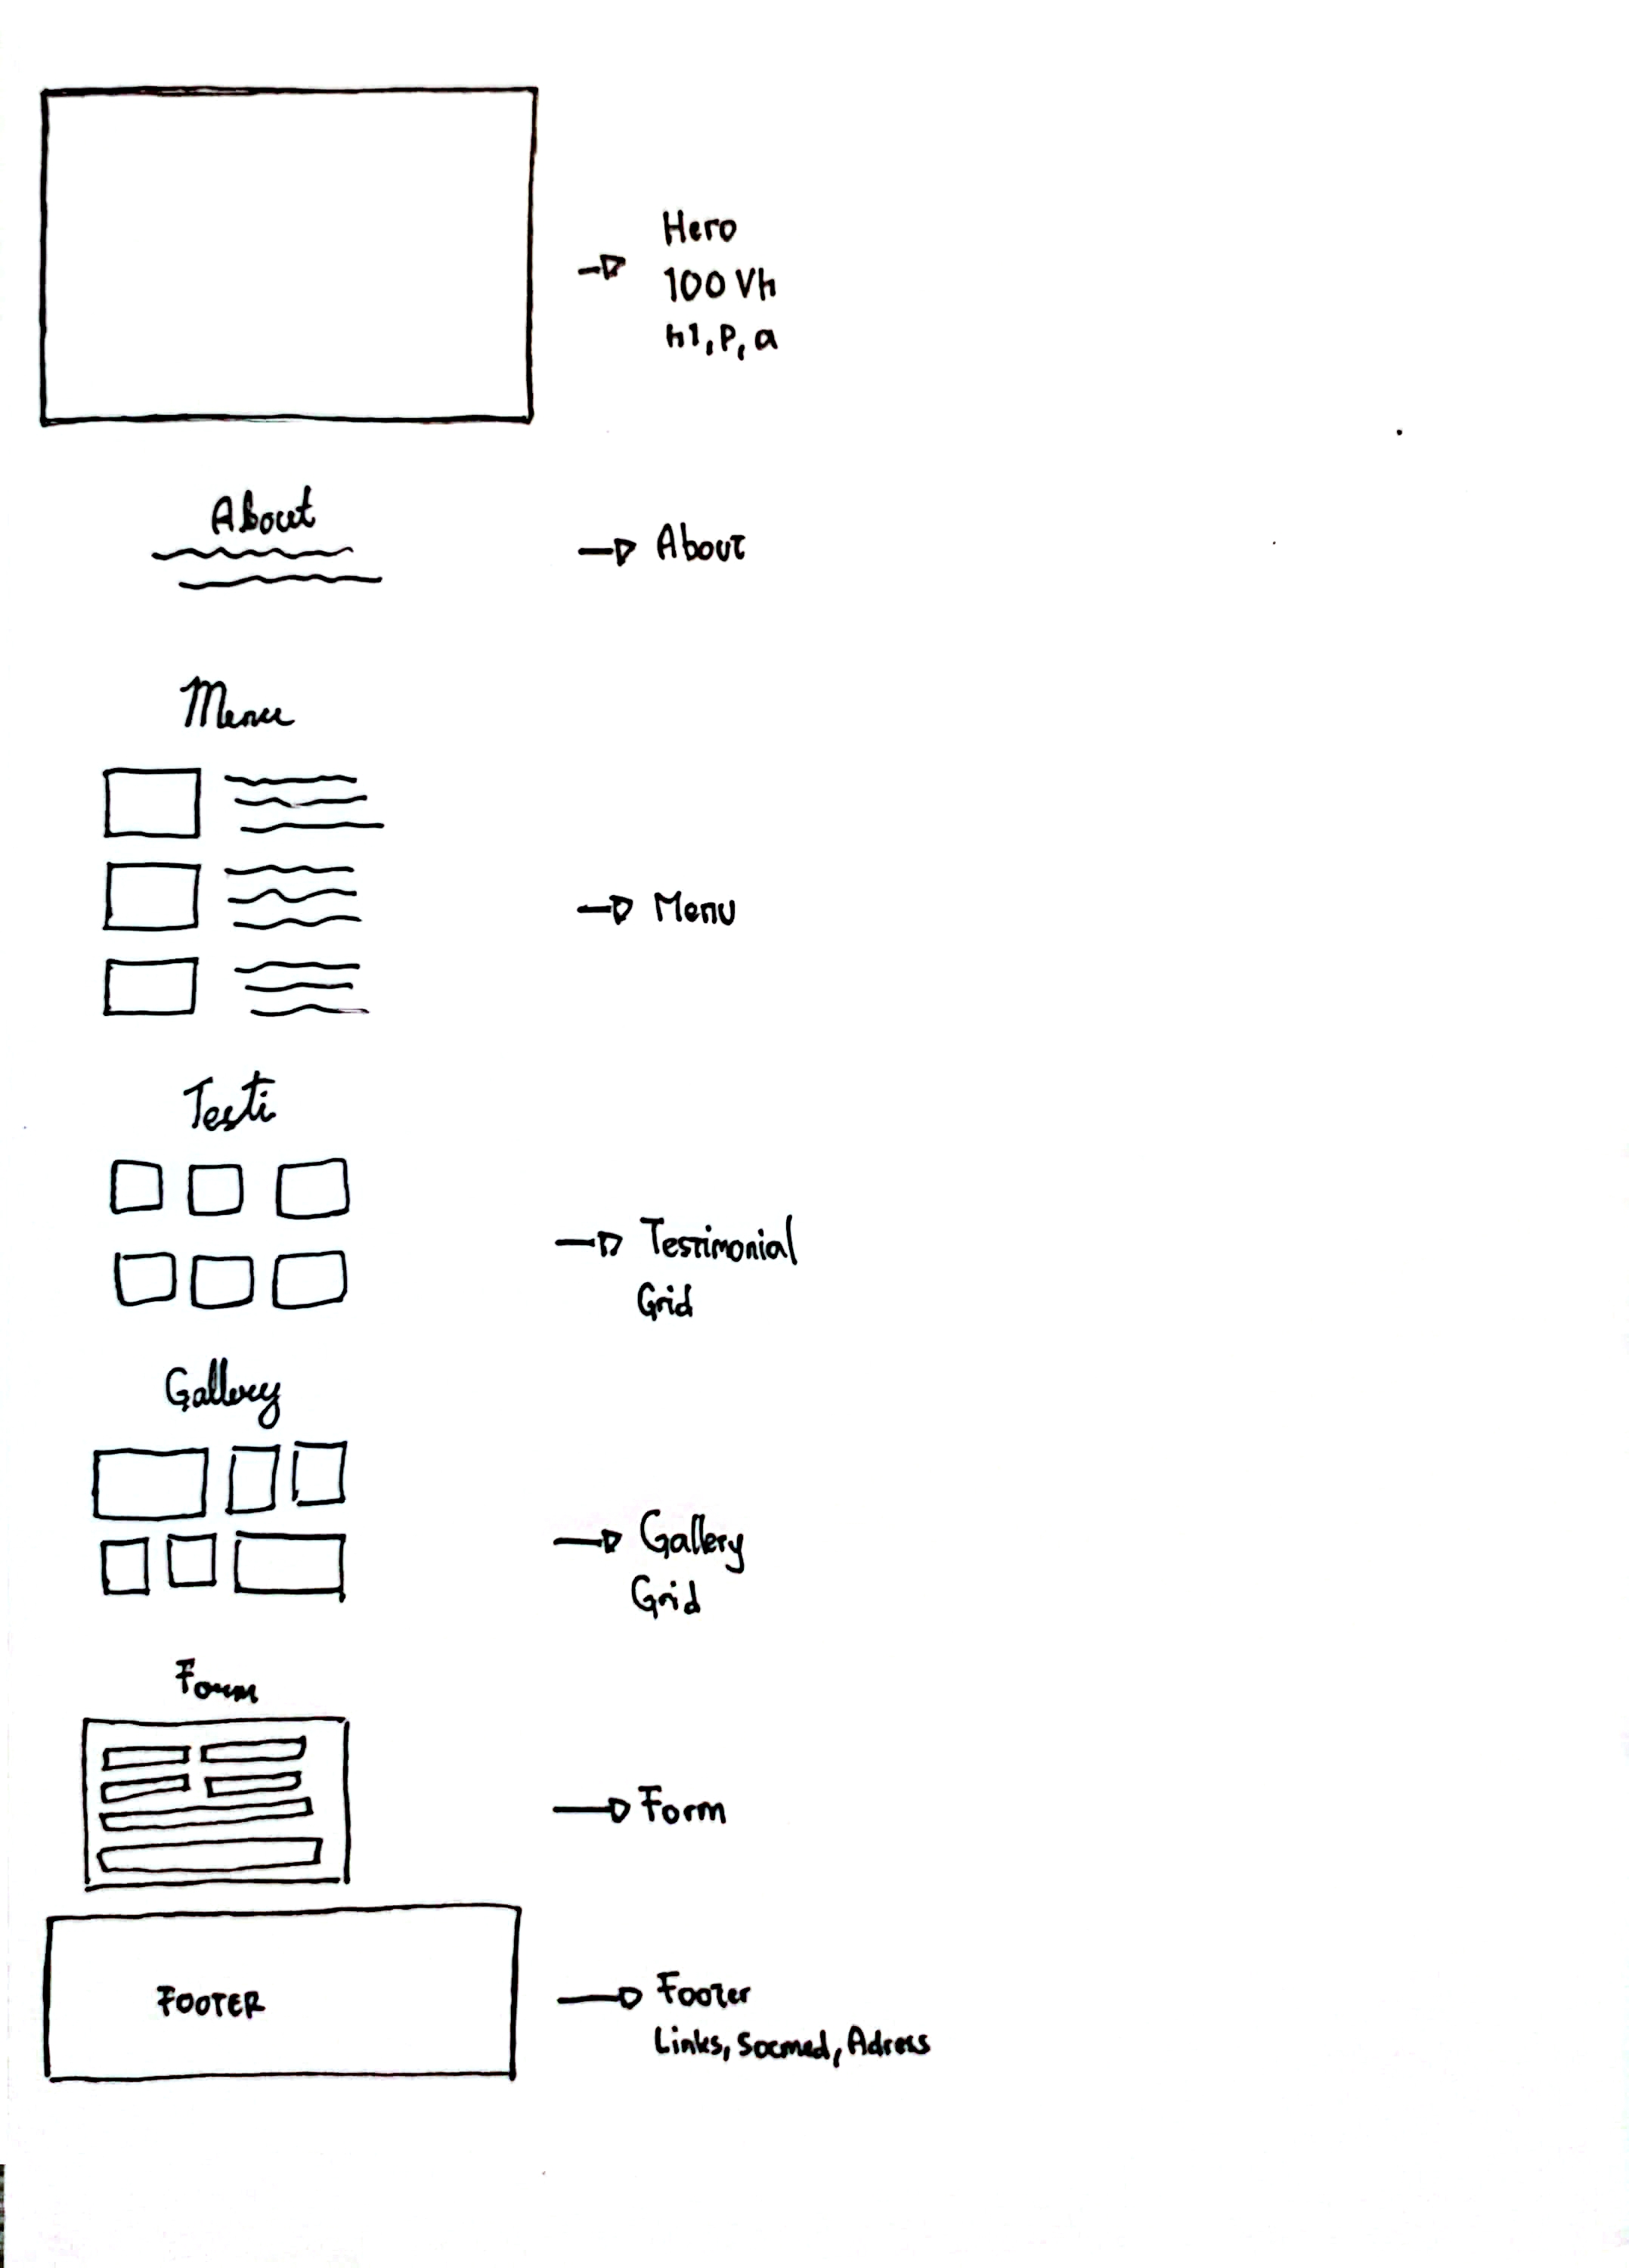 Hero
100 Vh
h1, P, a
About
About
Menu
Menu
Testi
Testimonial
Grid
Gallery
Gallery
Grid
Form
Form
FOOTER
Footer
Links, Socmed, Adress